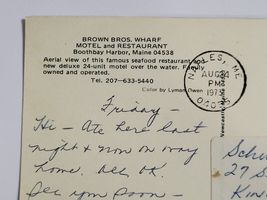 BROWN BROS. WHARF
MOTEL and RESTAURANT
Boothbay Harbor, Maine 04538
Aerial view of this famous seafood restaurant and
new deluxe 24-unit motel over the water. Family
owned and operated.
Tel. 207—633-5440
Color by Lyman Owen
NAPLES, ME.
AUG 24
PM
1973
04055
Friday —
Hi — Ate here last
night & now on way
home. All OK.
See you soon —
27 S